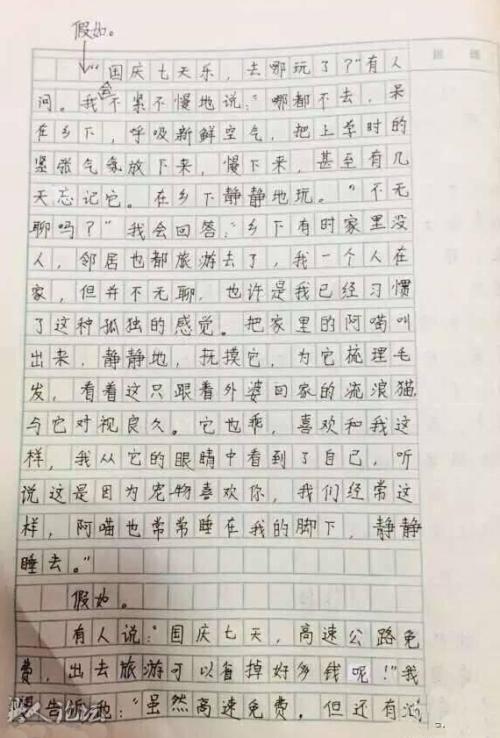 假如。
“国庆七天乐，去哪玩了？”有人
问。我会不紧不慢地说：“哪都不去，呆
在乡下，呼吸新鲜空气，把上学时的
紧张气氛放下来，慢下来，甚至有几
天忘记它。在乡下静静地玩。”“不无
聊吗？”我会回答：“乡下有时家里没
人，邻居也都旅游去了，我一个人在
家，但并不无聊，也许是我已经习惯
了这种孤独的感觉。把家里的阿喵叫
出来，静静地，抚摸它，为它梳理毛
发，看着这只跟着外婆回家的流浪猫，
与它对视良久。它也乖，喜欢和我这
样，我从它的眼睛中看到了自己，听
说这是因为宠物喜欢你，我们经常这
样，阿喵也常常睡在我的脚下，静静
睡去。”
假如。
有人说：“国庆七天，高速公路免
费，出去旅游可以省掉好多钱呢！”我
告诉她：“虽然高速免费，但还有